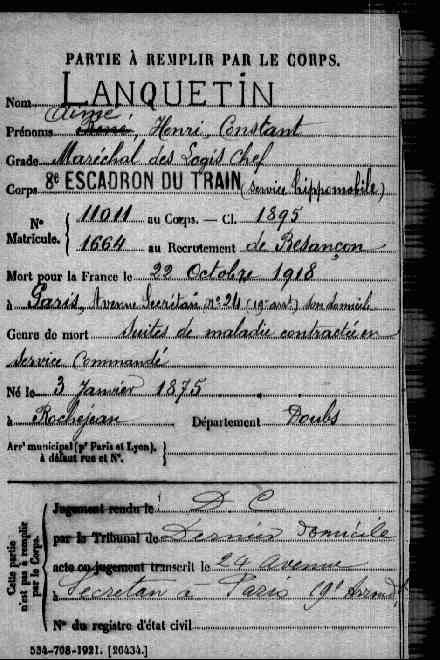 PARTIE À REMPLIR PAR LE CORPS.
Nom LANQUETIN
Aimé
Prénoms René, Henri, Constant
Grade Maréchal des Logis chef
Corps 8e ESCADRON DU TRAIN (service hippomobile)
No Matricule. { 11011 au Corps. — Cl. 1895
1664 au Recrutement de Besançon
Mort pour la France le 22 Octobre 1918
à Paris, Avenue Secrétan no 24 (19e arrt) son domicile
Genre de mort Suites de maladie contractée en
service Commandé
Né le 3 Janvier 1875
à Rochejean Département Doubs
Arrt municipal (pr Paris et Lyon), à défaut rue et No. }
Cette partie n'est pas à remplir par le Corps.
Jugement rendu le D. C
par le Tribunal de Dernier domicile
acte ou jugement transcrit le 24 avenue
à Secretan à Paris 19e Arrondt
No du registre d'état civil
534-708-1921. [26434.]